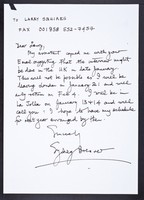 TO LARRY SQUIRES
FAX 001 858 532-7454
Dear Larry,
My assistant copied me with your
Email suggesting that the interview might
be done in the UK in late January.
This will not be possible as I will be
leaving London on January 21 and will
only return on Feb 4. I will be in
La Jolla on January 13 & 14 and will
call you. I hope to have my schedule
for this year arranged by then.
Sincerely
Sydney Brenner